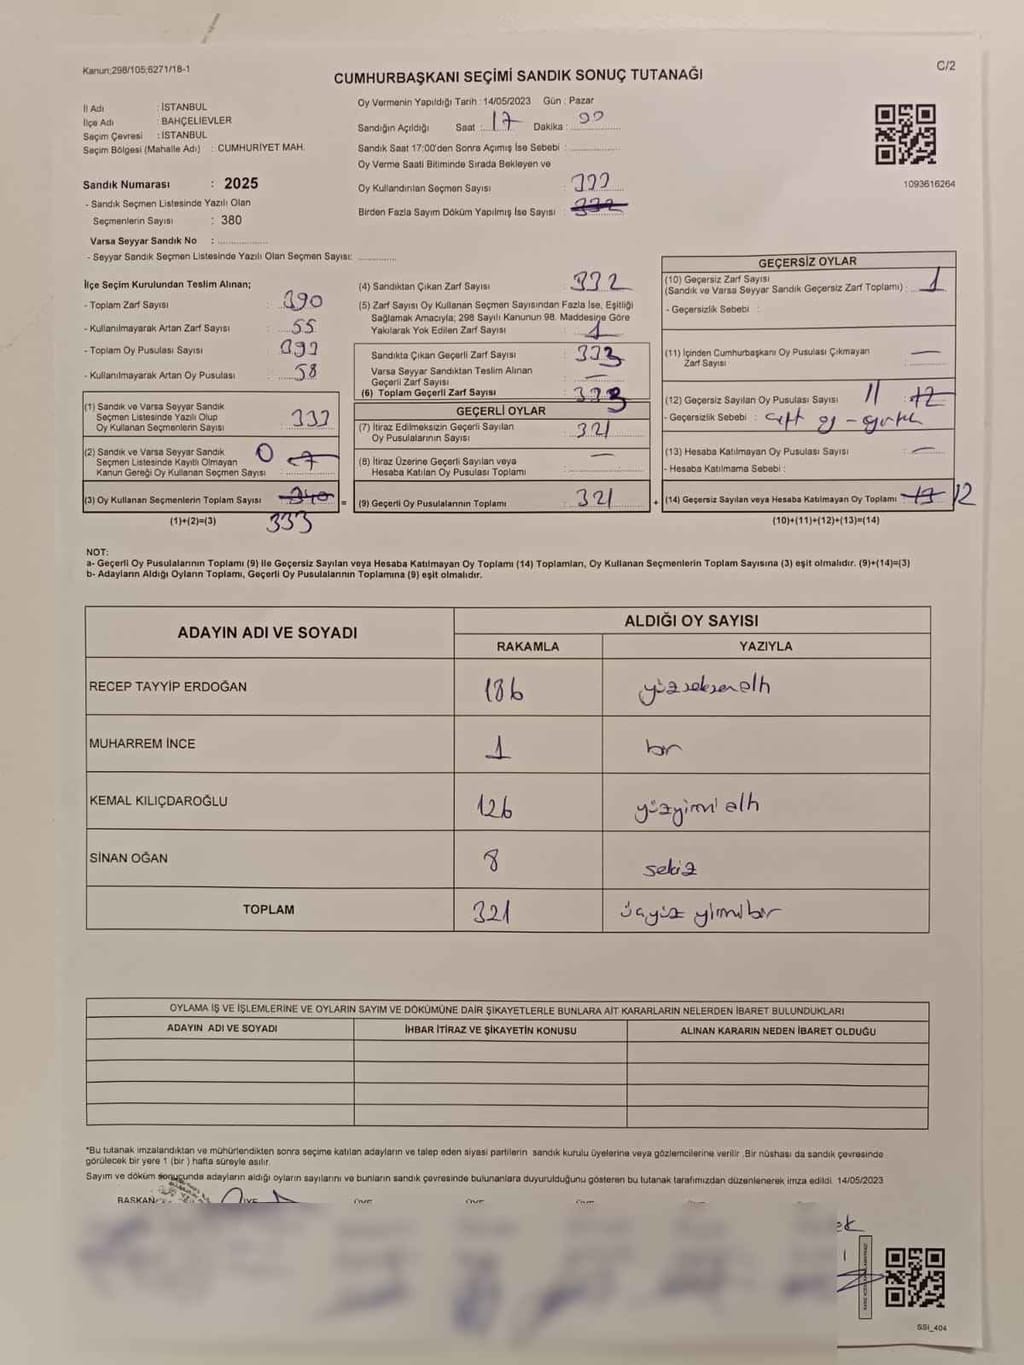 Kanun:298/105;6271/18-1
C/2
CUMHURBAŞKANI SEÇİMİ SANDIK SONUÇ TUTANAĞI
İl Adı : İSTANBUL
İlçe Adı : BAHÇELİEVLER
Seçim Çevresi : İSTANBUL
Seçim Bölgesi (Mahalle Adı) : CUMHURİYET MAH.
Sandık Numarası : 2025
- Sandık Seçmen Listesinde Yazılı Olan
Seçmenlerin Sayısı : 380
Varsa Seyyar Sandık No :
- Seyyar Sandık Seçmen Listesinde Yazılı Olan Seçmen Sayısı:
Oy Vermenin Yapıldığı Tarih : 14/05/2023 Gün : Pazar
Sandığın Açıldığı Saat : 17 Dakika :
Sandık Saat 17:00'den Sonra Açımış İse Sebebi :
Oy Verme Saati Bitiminde Sırada Bekleyen ve
Oy Kullandırılan Seçmen Sayısı
Birden Fazla Sayım Döküm Yapılmış İse Sayısı 332
1093616264
İlçe Seçim Kurulundan Teslim Alınan;
- Toplam Zarf Sayısı 390
- Kullanılmayarak Artan Zarf Sayısı 55
- Toplam Oy Pusulası Sayısı
- Kullanılmayarak Artan Oy Pusulası 58
(1) Sandık ve Varsa Seyyar Sandık
Seçmen Listesinde Yazılı Olup
Oy Kullanan Seçmenlerin Sayısı 333
(2) Sandık ve Varsa Seyyar Sandık
Seçmen Listesinde Kayıtlı Olmayan
Kanun Gereği Oy Kullanan Seçmen Sayısı 0 7
(3) Oy Kullanan Seçmenlerin Toplam Sayısı 340 =
(1)+(2)=(3) 333
(4) Sandıktan Çıkan Zarf Sayısı 332
(5) Zarf Sayısı Oy Kullanan Seçmen Sayısından Fazla İse, Eşitliği
Sağlamak Amacıyla; 298 Sayılı Kanunun 98. Maddesine Göre
Yakılarak Yok Edilen Zarf Sayısı 1
Sandıkta Çıkan Geçerli Zarf Sayısı 333
Varsa Seyyar Sandıktan Teslim Alınan
Geçerli Zarf Sayısı —
(6) Toplam Geçerli Zarf Sayısı 333
GEÇERLİ OYLAR
(7) İtiraz Edilmeksizin Geçerli Sayılan
Oy Pusulalarının Sayısı 321
(8) İtiraz Üzerine Geçerli Sayılan veya
Hesaba Katılan Oy Pusulası Toplamı —
(9) Geçerli Oy Pusulalarının Toplamı 321 +
GEÇERSİZ OYLAR
(10) Geçersiz Zarf Sayısı
(Sandık ve Varsa Seyyar Sandık Geçersiz Zarf Toplamı) : 1
- Geçersizlik Sebebi :
(11) İçinden Cumhurbaşkanı Oy Pusulası Çıkmayan
Zarf Sayısı —
(12) Geçersiz Sayılan Oy Pusulası Sayısı 11 : 12
- Geçersizlik Sebebi : çift oy -
(13) Hesaba Katılmayan Oy Pusulası Sayısı —
- Hesaba Katılmama Sebebi :
(14) Geçersiz Sayılan veya Hesaba Katılmayan Oy Toplamı 13 12
(10)+(11)+(12)+(13)=(14)
NOT:
a- Geçerli Oy Pusulalarının Toplamı (9) ile Geçersiz Sayılan veya Hesaba Katılmayan Oy Toplamı (14) Toplamları, Oy Kullanan Seçmenlerin Toplam Sayısına (3) eşit olmalıdır. (9)+(14)=(3)
b- Adayların Aldığı Oyların Toplamı, Geçerli Oy Pusulalarının Toplamına (9) eşit olmalıdır.
ADAYIN ADI VE SOYADI
ALDIĞI OY SAYISI
RAKAMLA YAZIYLA
RECEP TAYYİP ERDOĞAN 186 yüzseksenaltı
MUHARREM İNCE 1 bir
KEMAL KILIÇDAROĞLU 126 yüzyirmi altı
SİNAN OĞAN 8 sekiz
TOPLAM 321 üçyüz yirmibir
OYLAMA İŞ VE İŞLEMLERİNE VE OYLARIN SAYIM VE DÖKÜMÜNE DAİR ŞİKAYETLERLE BUNLARA AİT KARARLARIN NELERDEN İBARET BULUNDUKLARI
ADAYIN ADI VE SOYADI İHBAR İTİRAZ VE ŞİKAYETİN KONUSU ALINAN KARARIN NEDEN İBARET OLDUĞU
*Bu tutanak imzalandıktan ve mühürlendikten sonra seçime katılan adayların ve talep eden siyasi partilerin sandık kurulu üyelerine veya gözlemcilerine verilir. Bir nüshası da sandık çevresinde
görülecek bir yere 1 (bir) hafta süreyle asılır.
Sayım ve döküm sonucunda adayların aldığı oyların sayılarını ve bunların sandık çevresinde bulunanlara duyurulduğunu gösteren bu tutanak tarafımızdan düzenlenerek imza edildi. 14/05/2023
BAŞKAN ÜYE ÜYE ÜYE ÜYE
SSI_404